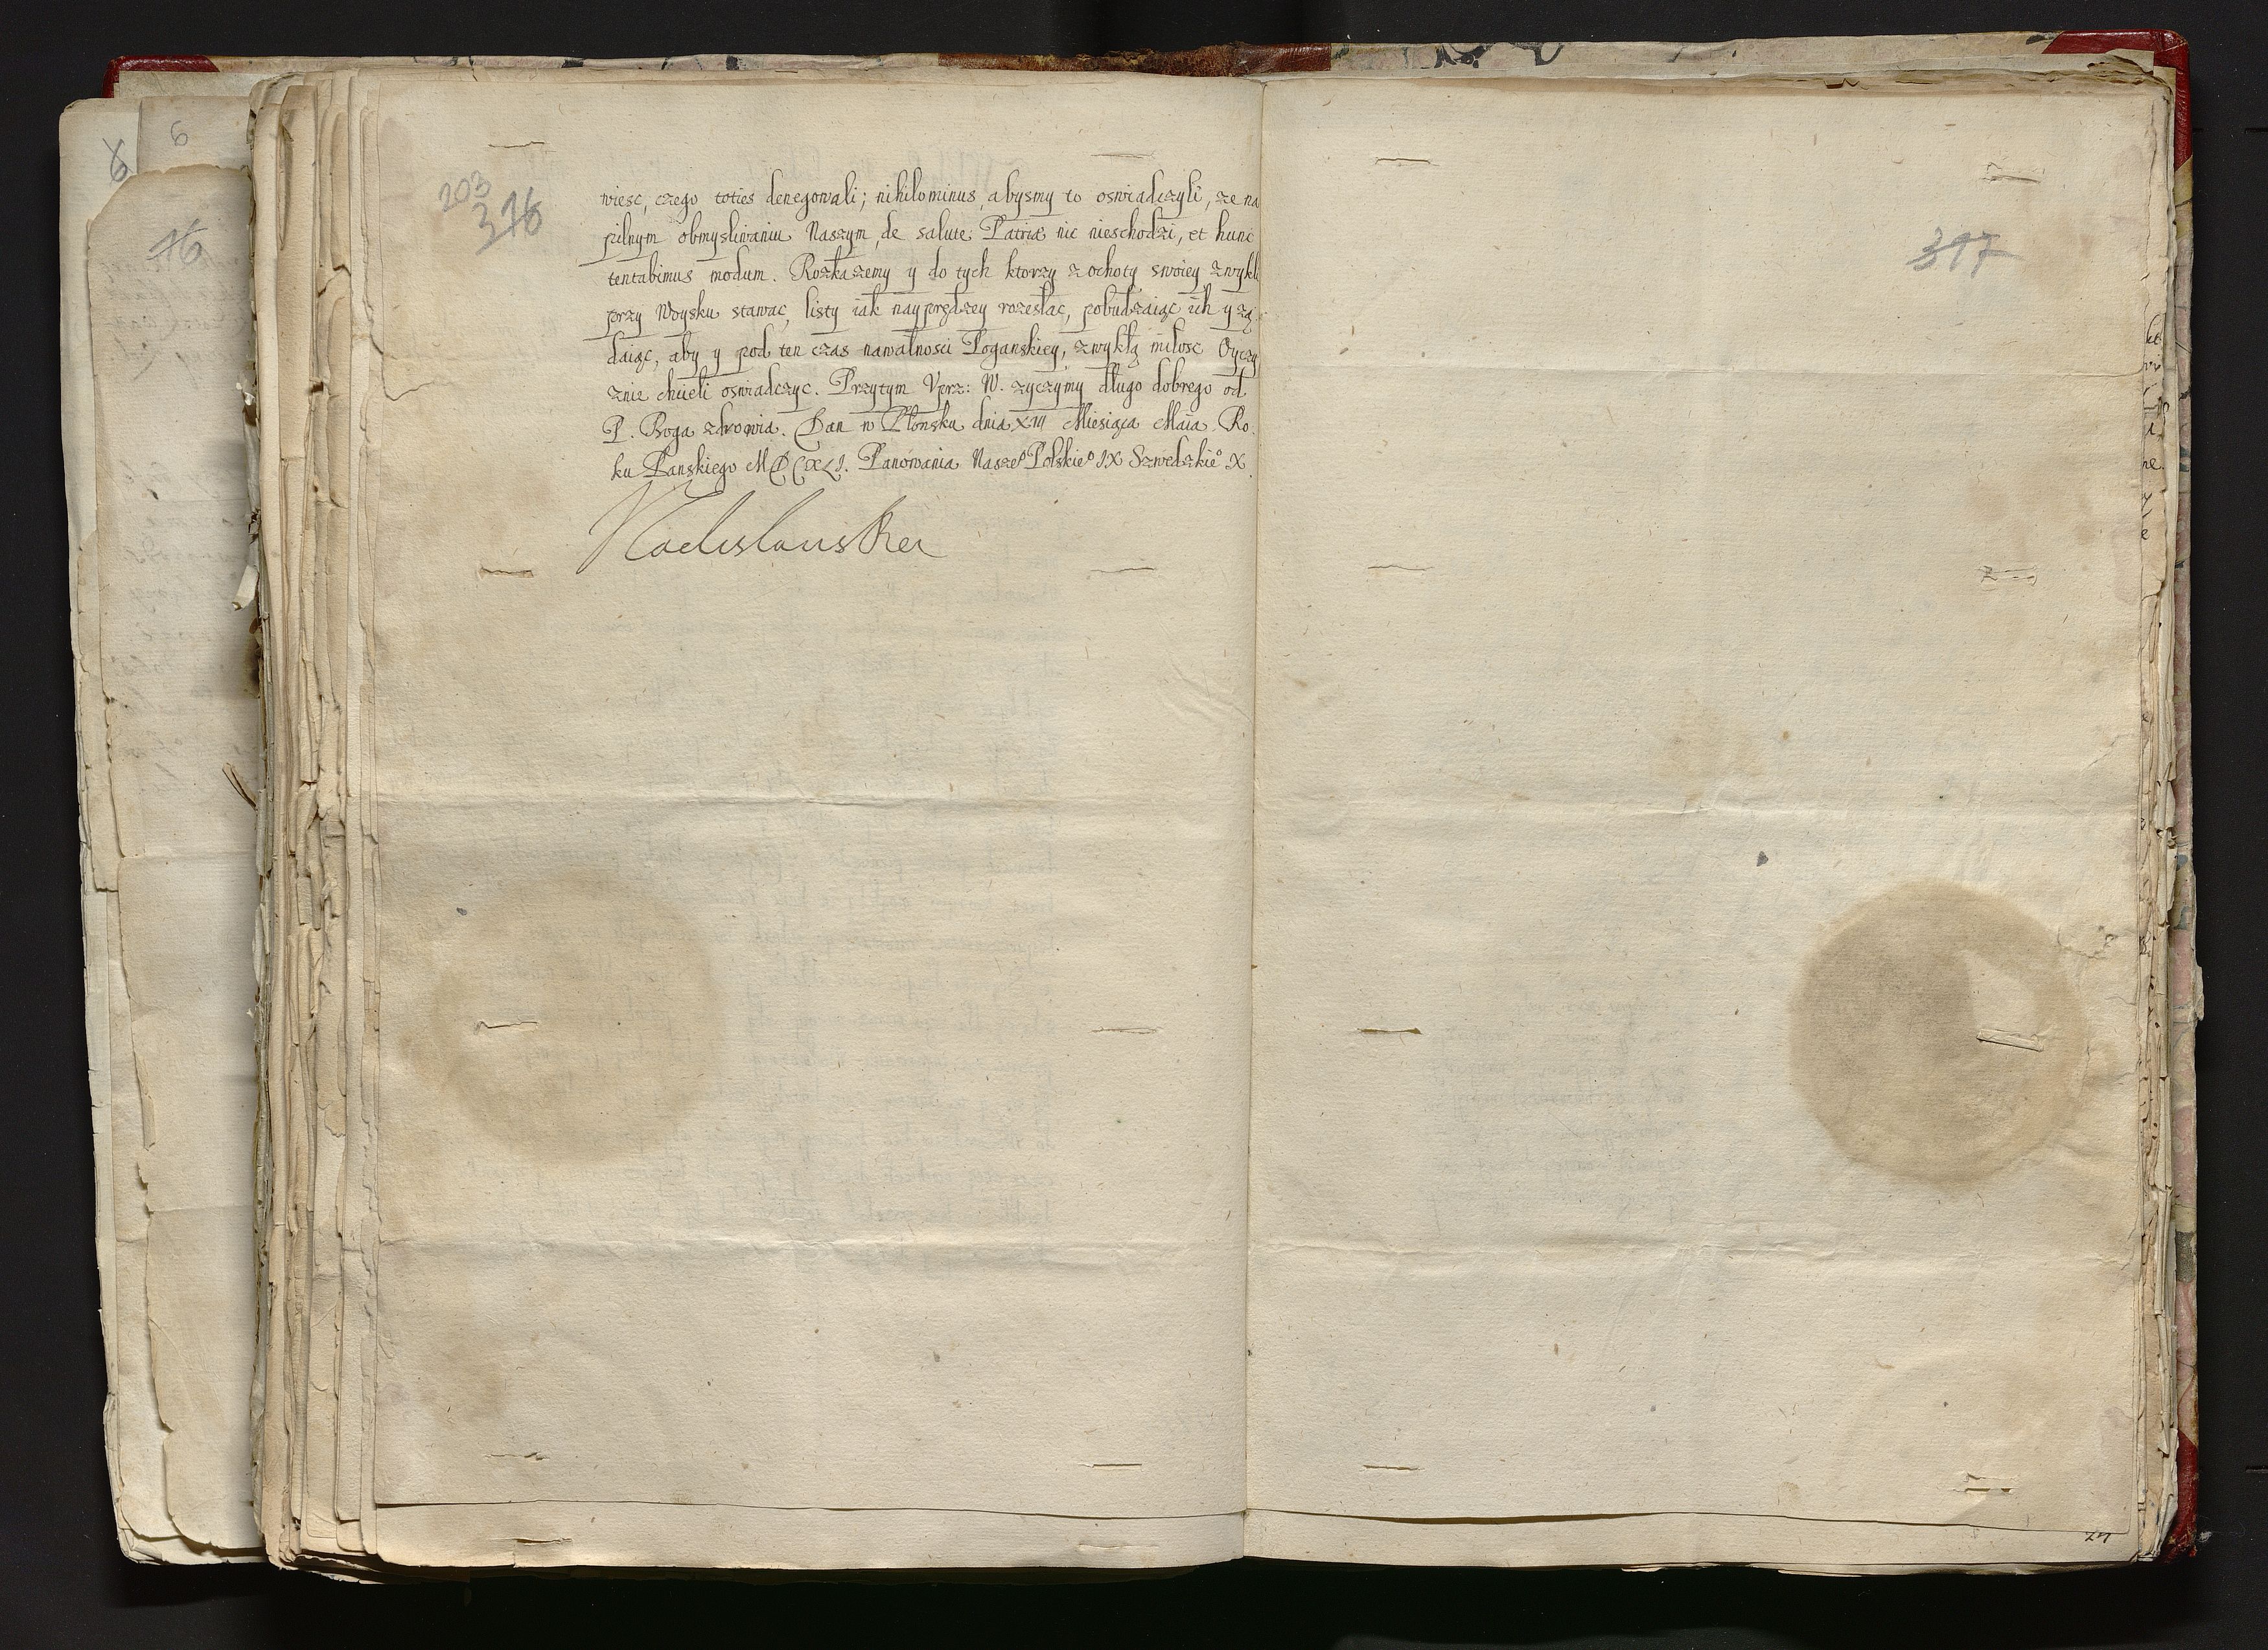 6
6
76
203
376
wiesc, czego toties denegowali; nihilominus, abysmy to oswiadczyli, ze na
pilnym obmysliwaniu Naszym, de salute Patriæ nic nieschodzi, et hunc
tentabimus modum. Roskaszemy y do tych ktorzy z ochoty swoiey zwykli
przy Woysku stawac, listy iak nayprędzey rozesłac, pobudzaiąc ich y żą
daiąc, aby y pod ten czas nawałnosci Poganskiey, zwykłą miłosc Oyczy
znie chcieli oswiadczyc. Przytym Uprz: W. zyczymy długo dobrego od
P. Boga zdrowia. Dan w Płonsku dnia XIII Miesiąca Maia Ro
ku Panskiego MDCXLI. Panowania Nasze⁰ Polskie⁰ IX Szwedzkie⁰ X.
Vladislaus Rex
317
27